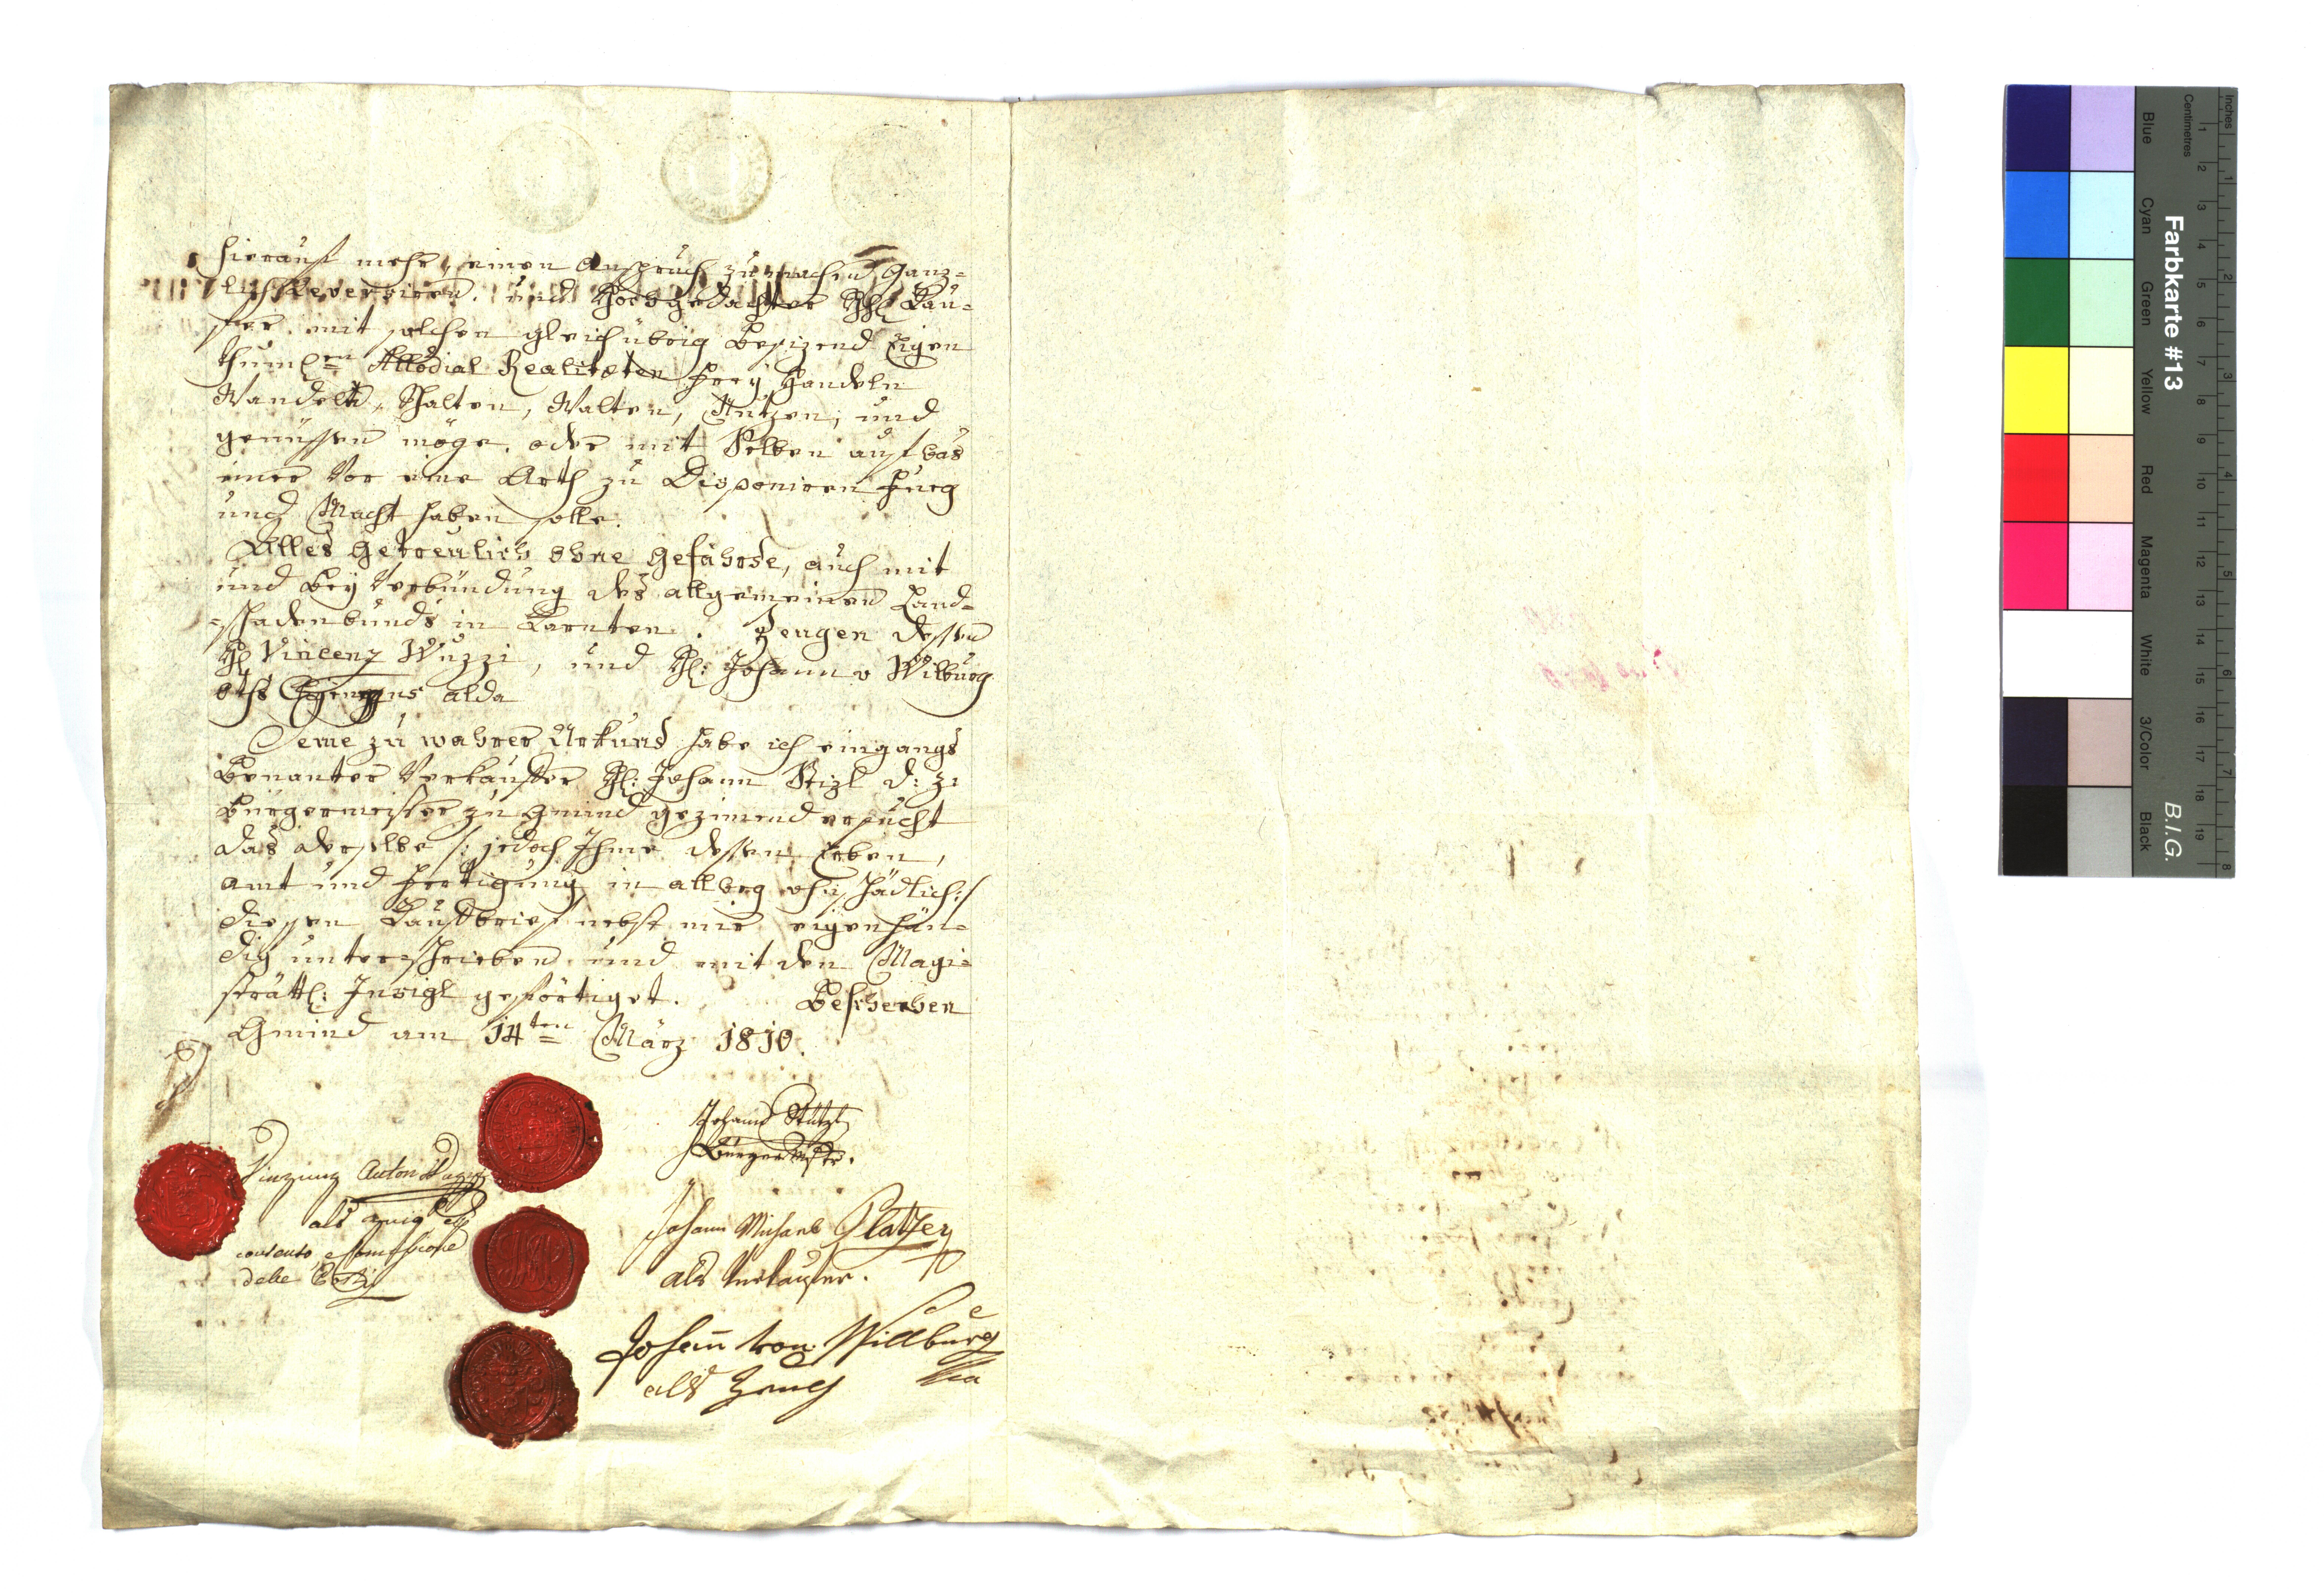 hierauf mehr, einen Anspruch zu machen, gänz-
lich Reversiren. und Hochgedachter HH: Käu-
fer mit solchen gleich übrig besizend Eigen
thuml:en Allodial Realitæten frey Handeln
Wandeln, Schalten, Walten, Nutzen, und
genüssen möge. oder mit Selben auf was
imer vor eine Arth zu Disponiren fueg
und Macht haben solle.
Alles getreulich ohne gefährde, auch mit
und bey Verbündung des allgemeinen Land-
=schadenbunds in Karnten. Zeugen dessen
H: Vincenz Wuzzi, und H: Johann v Wilburg
alda
Deme zu wahrer Urkund habe ich eingangs
benanter Verkäuffer H: Johann Stizl d: z:
Bürgermeister zu Gmünd gezimend ersucht
das derselbe /: jedoch Ihme dessen Erben,
amt und fertigung in allweg ohnschädlich :/
diesen Kauffbrief nebst mir eigenhän-
dig unterschrieben und mit den Magi-
strättl: Insigl geförtiget. Beschechen
Gmünd am 14ten März 1810.
Johann Stizl
Bürgermstr.
Vinzenz Anton
als
dalle
Johann Michael Platzer
als Verkaufer.
Johañ von Willburg
als Zeug
Farbkarte #13
B.I.G.
Inches
Centimetres
1 2 3 4 5 6 7 8 9 10 11 12 13 14 15 16 17 18 19
1 2 3 4 5 6 7 8
Blue
Cyan
Green
Yellow
Red
Magenta
White
3/Color
Black